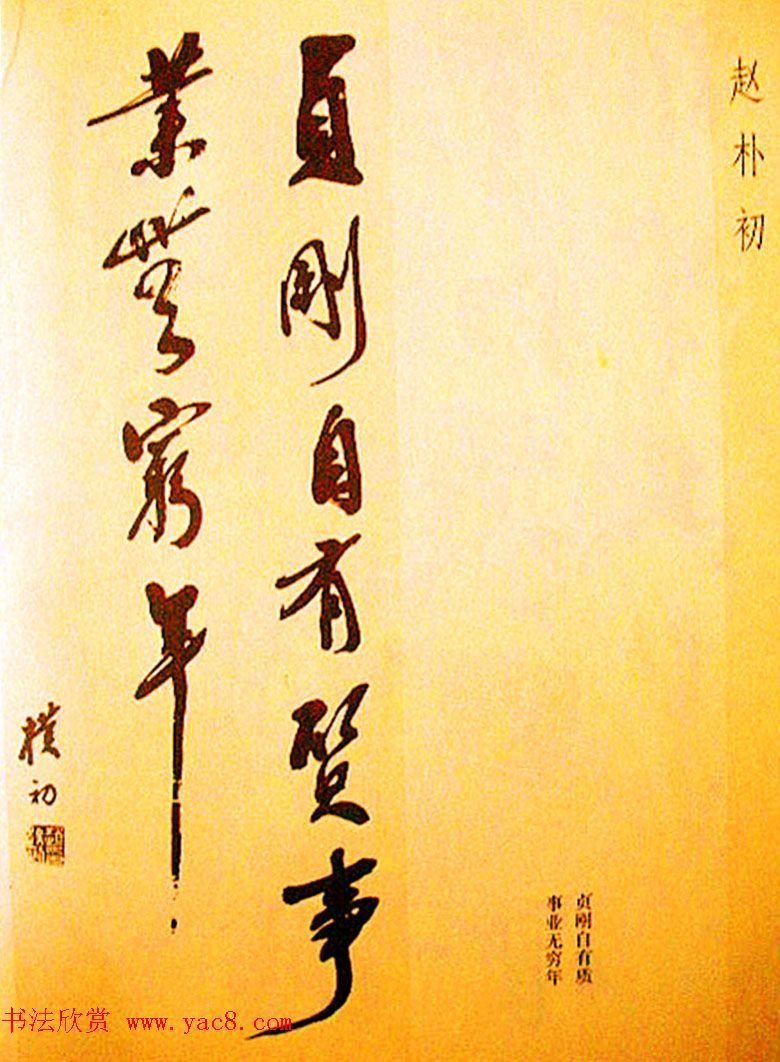 赵朴初
貞剛自有質事
業無窮年
樸初
贞刚自有质
事业无穷年
书法欣赏 www.yac8.com